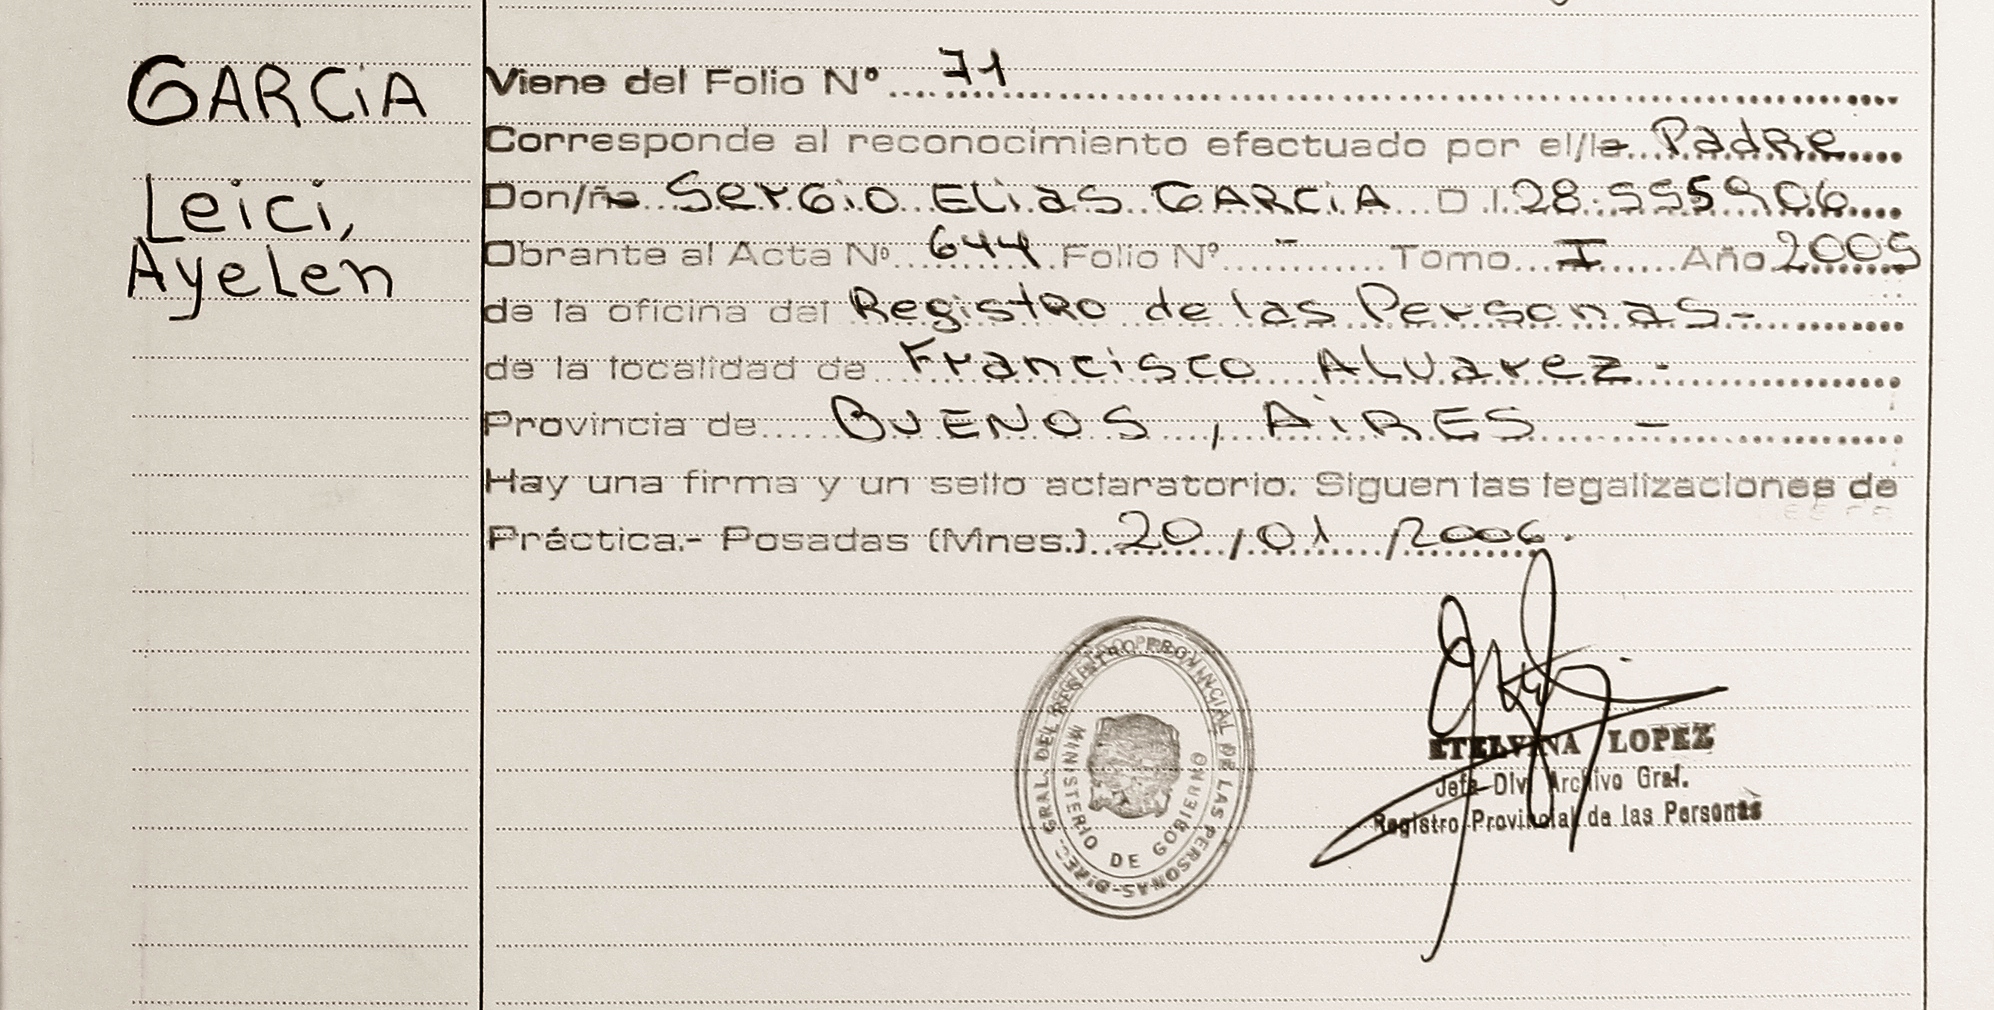 GARCiA
Leici,
Ayelen
Viene del Folio Nº 71
Corresponde al reconocimiento efectuado por el/la Padre
Don/ña Sergio Elias GARCiA D.I 28.555906
Obrante al Acta Nº 644 Folio Nº - Tomo I Año 2005
de la oficina del Registro de las Personas-
de la localidad de Francisco Alvarez-
Provincia de BUENOS, AiRES -
Hay una firma y un sello aclaratorio. Siguen las legalizaciones de
Práctica.- Posadas (Mnes.) 20/01/2006.
DIREC. GRAL. DEL REGISTRO PROVINCIAL DE LAS PERSONAS-
MINISTERIO DE GOBIERNO
ETELVINA LOPEZ
Jefa Div. Archivo Gral.
Registro Provincial de las Personas